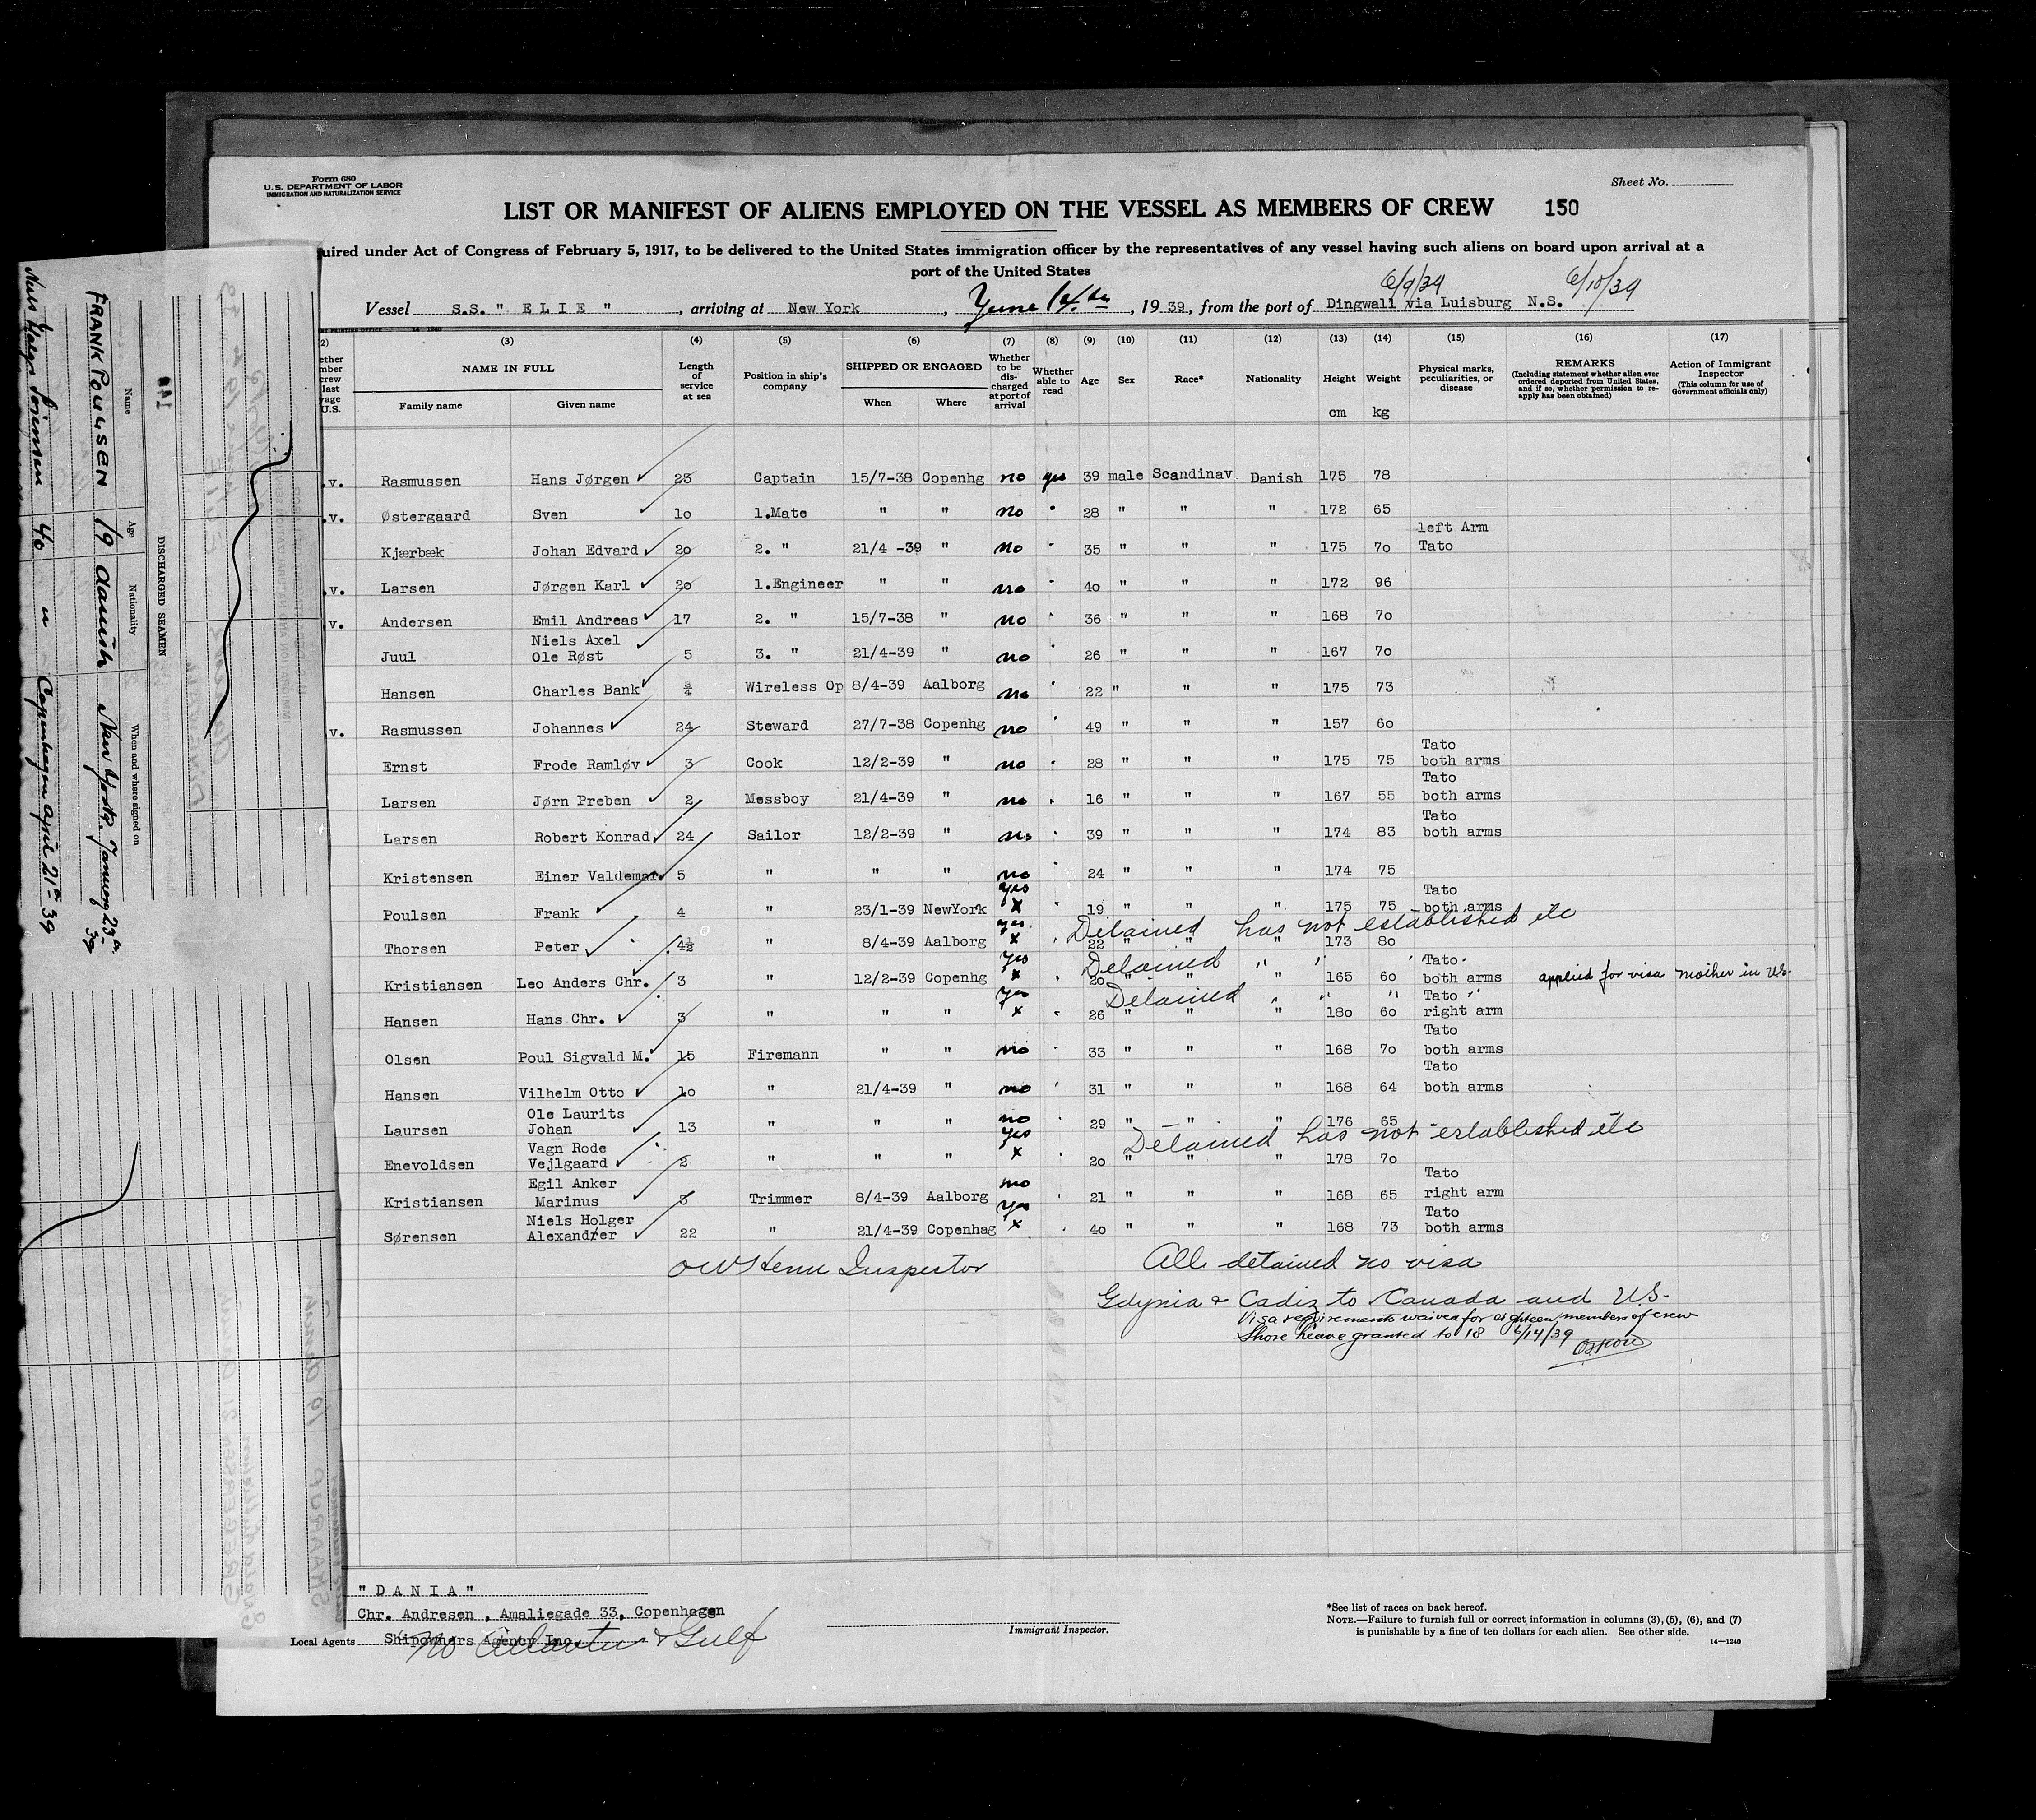 Form 680
U.S. DEPARTMENT OF LABOR
IMMIGRATION AND NATURALIZATION SERVICE
Sheet No.
LIST OR MANIFEST OF ALIENS EMPLOYED ON THE VESSEL AS MEMBERS OF CREW 150
uired under Act of Congress of February 5, 1917, to be delivered to the United States immigration officer by the representatives of any vessel having such aliens on board upon arrival at a
port of the United States
6/9/39 6/10/39
Vessel S.S. " ELIE " , arriving at New York , June 14th , 19 39, from the port of Dingwall via Luisburg N.S.
(2) (3) (4) (5) (6) (7) (8) (9) (10) (11) (12) (13) (14) (15) (16) (17)
ether mber crew last yage U.S. NAME IN FULL Family name Given name Length of service at sea Position in ship's company SHIPPED OR ENGAGED When Where Whether to be dis- charged at port of arrival Whether able to read Age Sex Race* Nationality Height cm Weight kg Physical marks, peculiarities, or disease REMARKS (Including statement whether alien ever ordered deported from United States, and if so, whether permission to re- apply has been obtained) Action of Immigrant Inspector (This column for use of Government officials only)
.v. Rasmussen Hans Jørgen 23 Captain 15/7-38 Copenhg no yes 39 male Scandinav Danish 175 78
.v. Østergaard Sven 1o 1.Mate " " no " 28 " " " 172 65
Kjærbæk Johan Edvard 2o 2. " 21/4 -39 " no " 35 " " " 175 7o left Arm Tato
.v. Larsen Jørgen Karl 2o 1.Engineer " " no " 4o " " " 172 96
v. Andersen Emil Andreas 17 2. " 15/7-38 " no " 36 " " " 168 7o
Juul Niels Axel Ole Røst 5 3. " 21/4-39 " no " 26 " " " 167 7o
Hansen Charles Bank ¾ Wireless Op 8/4-39 Aalborg no " 22 " " " 175 73
v. Rasmussen Johannes 24 Steward 27/7-38 Copenhg no " 49 " " " 157 6o
Ernst Frode Ramløv 3 Cook 12/2-39 " no " 28 " " " 175 75 Tato both arms
Larsen Jørn Preben 2 Messboy 21/4-39 " no " 16 " " " 167 55 Tato both arms
Larsen Robert Konrad 24 Sailor 12/2-39 " no " 39 " " " 174 83 Tato both arms
Kristensen Einer Valdemar 5 " " " no " 24 " " " 174 75
Poulsen Frank 4 " 23/1-39 NewYork yes x " 19 " " " 175 75 Tato both arms
Detained has not established etc
Thorsen Peter 4½ " 8/4-39 Aalborg yes x " 22 " " " 173 8o
Detained " "
Kristiansen Leo Anders Chr. 3 " 12/2-39 Copenhg yes x 2o " " " 165 6o Tato both arms applied for visa mother in US.
Detained " " "
Hansen Hans Chr. 3 " " " yes x " 26 " " " 18o 6o Tato right arm
Olsen Poul Sigvald M. 15 Firemann " " no " 33 " " " 168 7o Tato both arms
Hansen Vilhelm Otto 1o " 21/4-39 " no " 31 " " " 168 64 Tato both arms
Laursen Ole Laurits Johan 13 " " " no " 29 " " " 176 65
Detained has not established etc
Enevoldsen Vagn Rode Vejlgaard 2 " " " yes x " 2o " " " 178 7o
Kristiansen Egil Anker Marinus 3 Trimmer 8/4-39 Aalborg no " 21 " " " 168 65 Tato right arm
Sørensen Niels Holger Alexander 22 " 21/4-39 Copenhag yes x " 4o " " " 168 73 Tato both arms
Inspector All detained no visa
Gdynia & Cadiz to Canada and US.
Visa requirements waived for eighteen members of crew
Shore leave granted to 18 6/14/39
"DANIA"
Chr. Andresen , Amaliegade 33, Copenhagen
Local Agents Shipowners Agency Inc.
No Atlantic & Gulf
Immigrant Inspector.
*See list of races on back hereof.
NOTE.—Failure to furnish full or correct information in columns (3), (5), (6), and (7)
is punishable by a fine of ten dollars for each alien. See other side.
14—1240
DISCHARGED SEAMEN
Name Age Nationality When and where signed on
FRANK POULSEN 19 danish New York. January 23rd 39
Niels Holger Sörensen 40 " Copenhagen April 21st 39